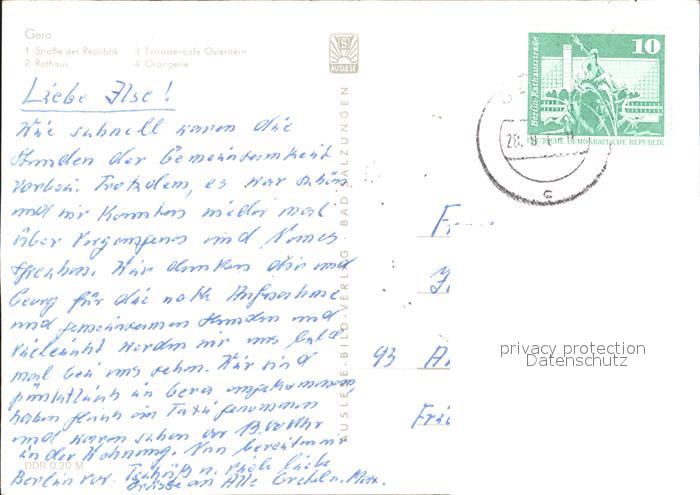 Gera
1 Straße der Republik 3 Terrassencafé Osterstein
2 Rathaus 4 Orangerie
AUSLESE
10
Berlin-Rathausstraße
DEUTSCHE DEMOKRATISCHE REPUBLIK
28.
Liebe Ilse!
Wie schnell waren die
Stunden der Gemeinsamkeit
vorbei. Trotzdem, es war schön
und wir konnten wieder mal
über Vergangenes und Neues
sprechen. Wir danken Dir und
Georg für die nette Aufnahme
und gemeinsamen Stunden und
vielleicht werden wir uns bald
mal bei uns sehn. Wir sind
pünktlich in Gera angekommen,
haben gleich ein Taxi genommen
und waren schon vor Uhr
in der Wohnung. Nun bereiten wir
Berlin vor. Tschüß u. viele liebe
Grüsse an Alle Max.
AUSLESE-BILD-VERLAG · BAD SALZUNGEN
93
privacy protection
Datenschutz
DDR 0,20 M